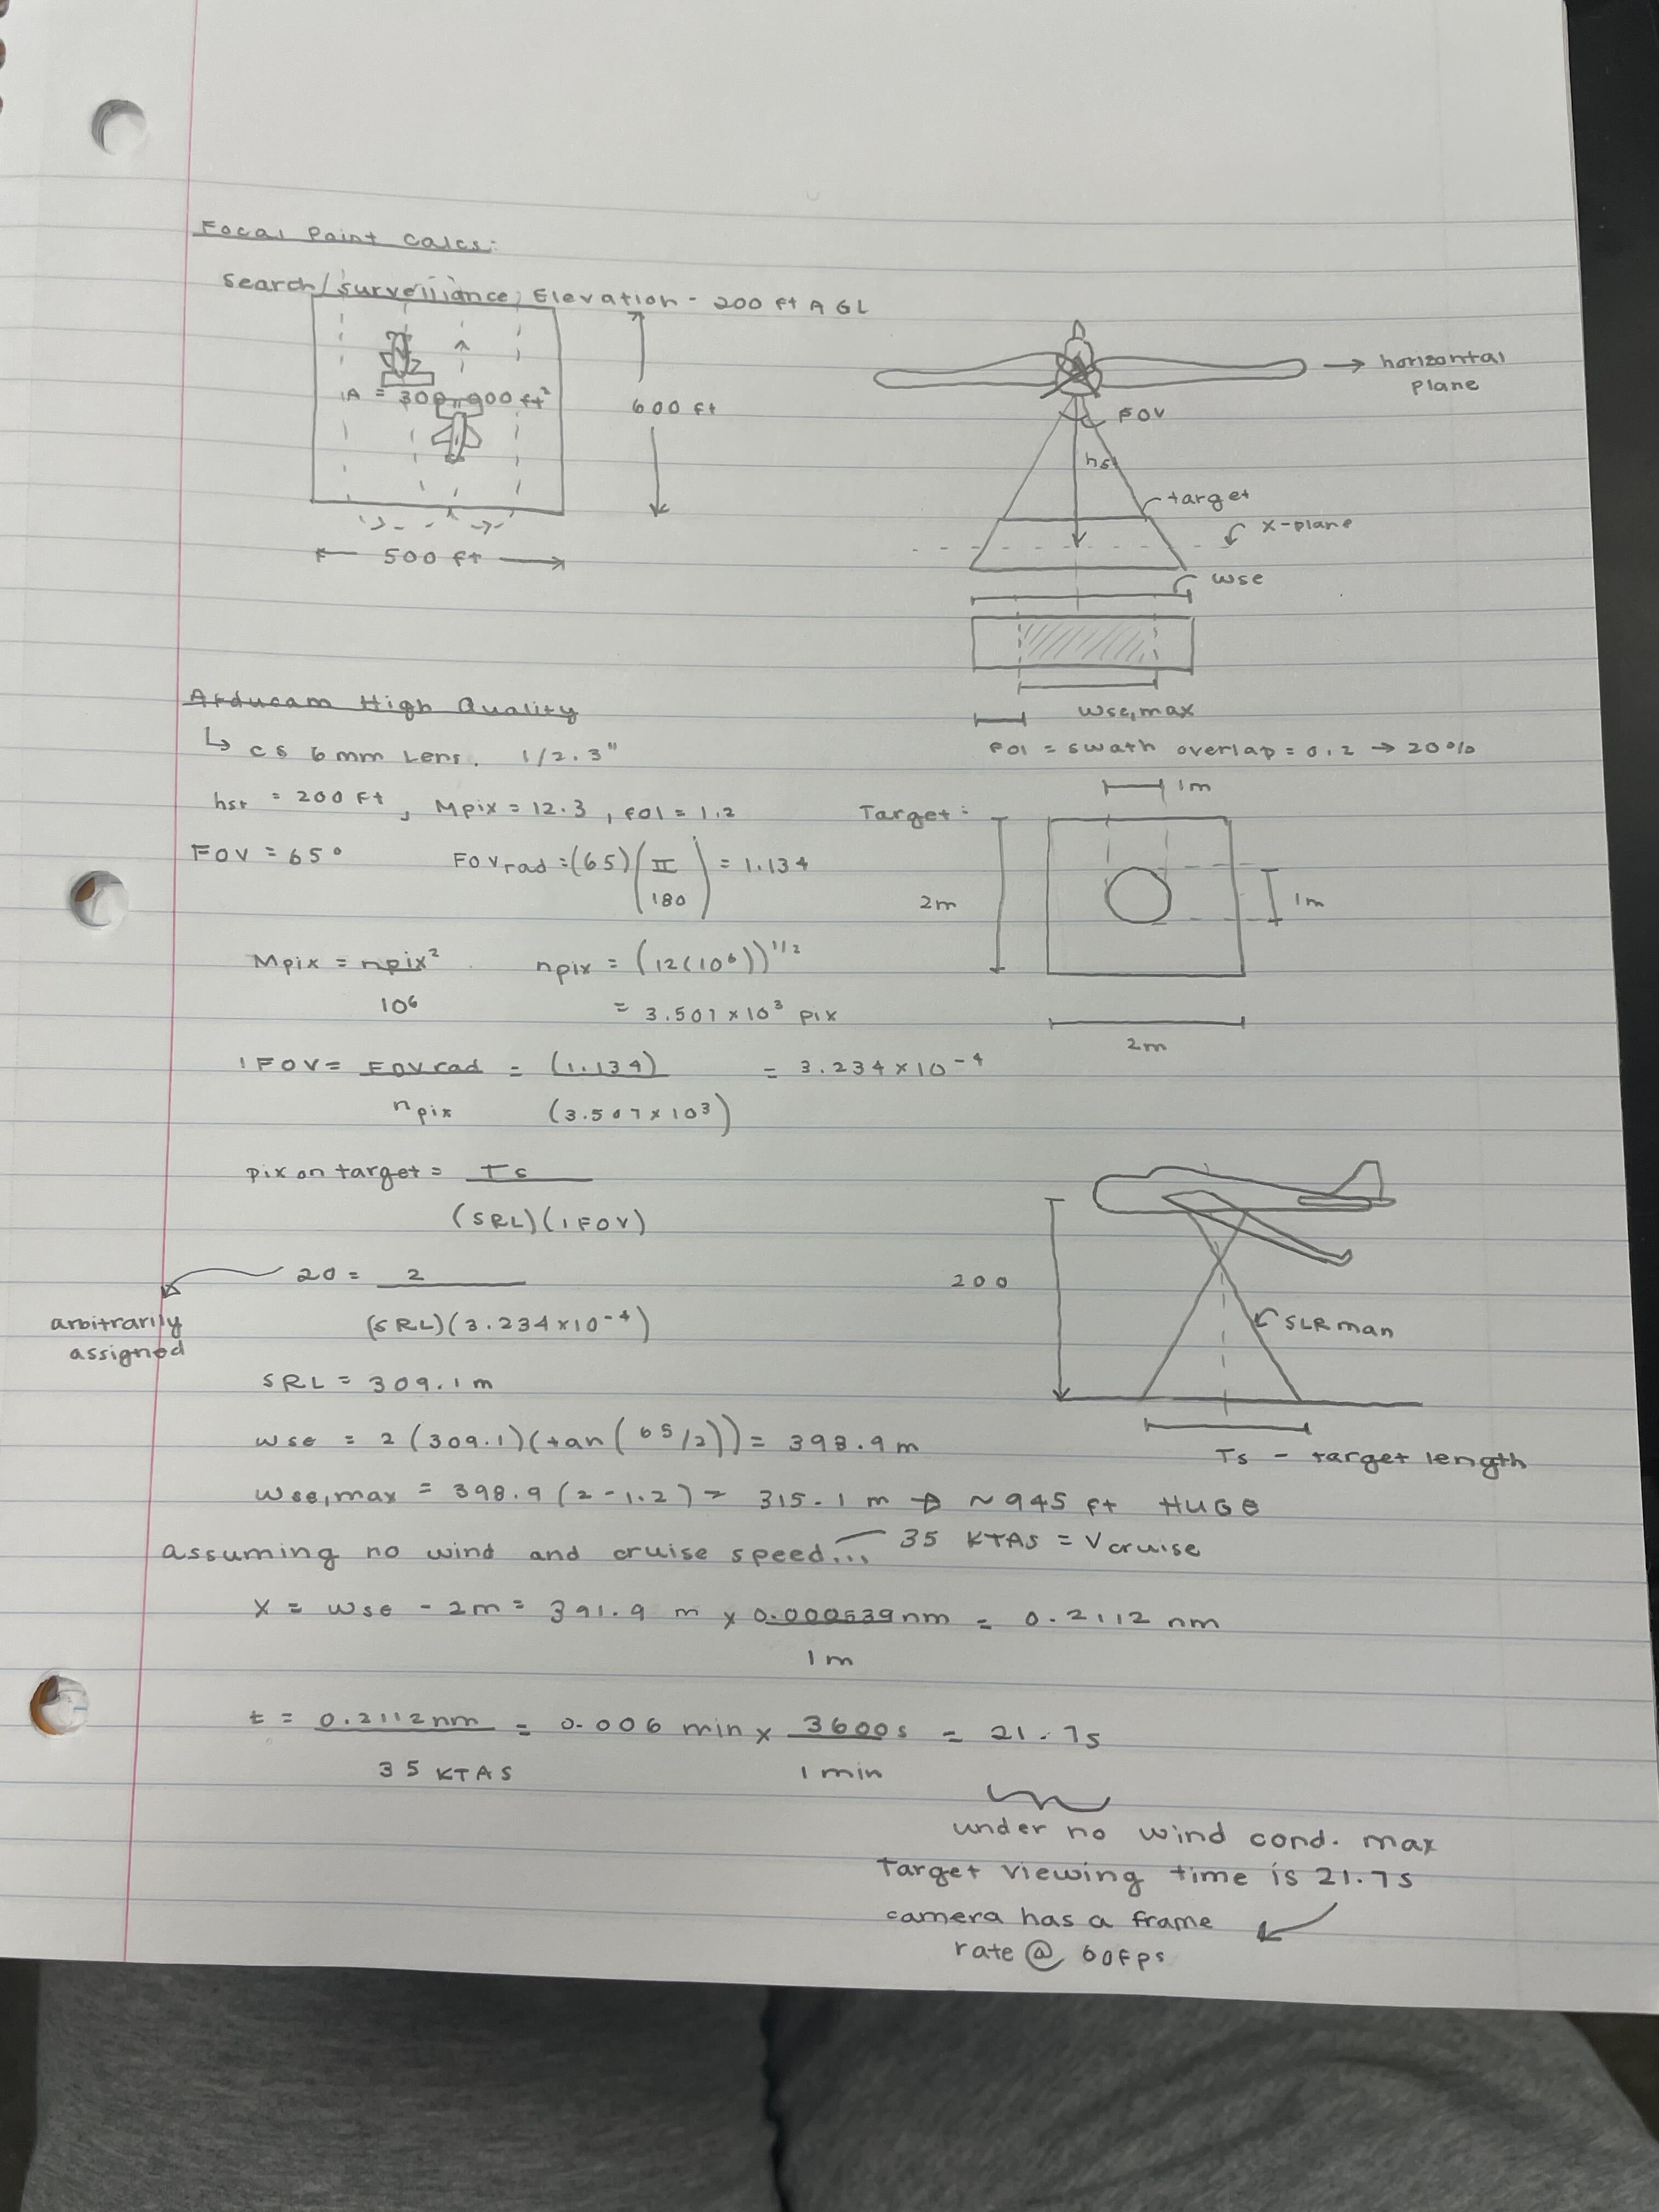 Focal Point Calcs:
Search/surveillance, Elevation - 200 ft AGL
A = 300,000 ft²
600 ft
500 ft
horizontal plane
FOV
hst
target
x-plane
wse
wse,max
fol = swath overlap = 0.2 → 20%
Arducam High Quality
↳ CS 6mm Lens. 1/2.3"
hst = 200 ft, Mpix = 12.3, fol = 1.2
FOV = 65° FOVrad = (65)(π/180) = 1.134
Target:
1m
2m
1m
2m
Mpix = npix²/10⁶ npix = (12(10⁶))^1/2
= 3.507 x 10³ pix
IFOV = FOVrad/npix = (1.134)/(3.507 x 10³) = 3.234 x 10⁻⁴
pix on target = Ts/(SRL)(IFOV)
20 = 2/(SRL)(3.234 x 10⁻⁴)
arbitrarily
assigned
200
SLR man
Ts - target length
SRL = 309.1 m
wse = 2(309.1)(tan(65/2)) = 393.9 m
wse,max = 398.9 (2-1.2) = 315.1 m → ~945 ft HUGE
assuming no wind and cruise speed... 35 KTAS = Vcruise
X = wse - 2m = 391.9 m x 0.000539nm/1m = 0.2112 nm
t = 0.2112nm/35 KTAS = 0.006 min x 3600s/1 min = 21.7s
under no wind cond. max
Target viewing time is 21.7s
camera has a frame
rate @ 60fps